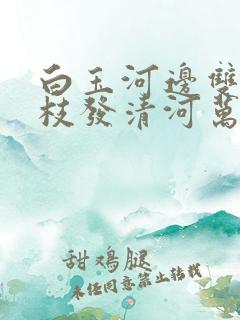 白玉河邊雙
枝發清河萬
甜鸡腿
未经同意禁止转载